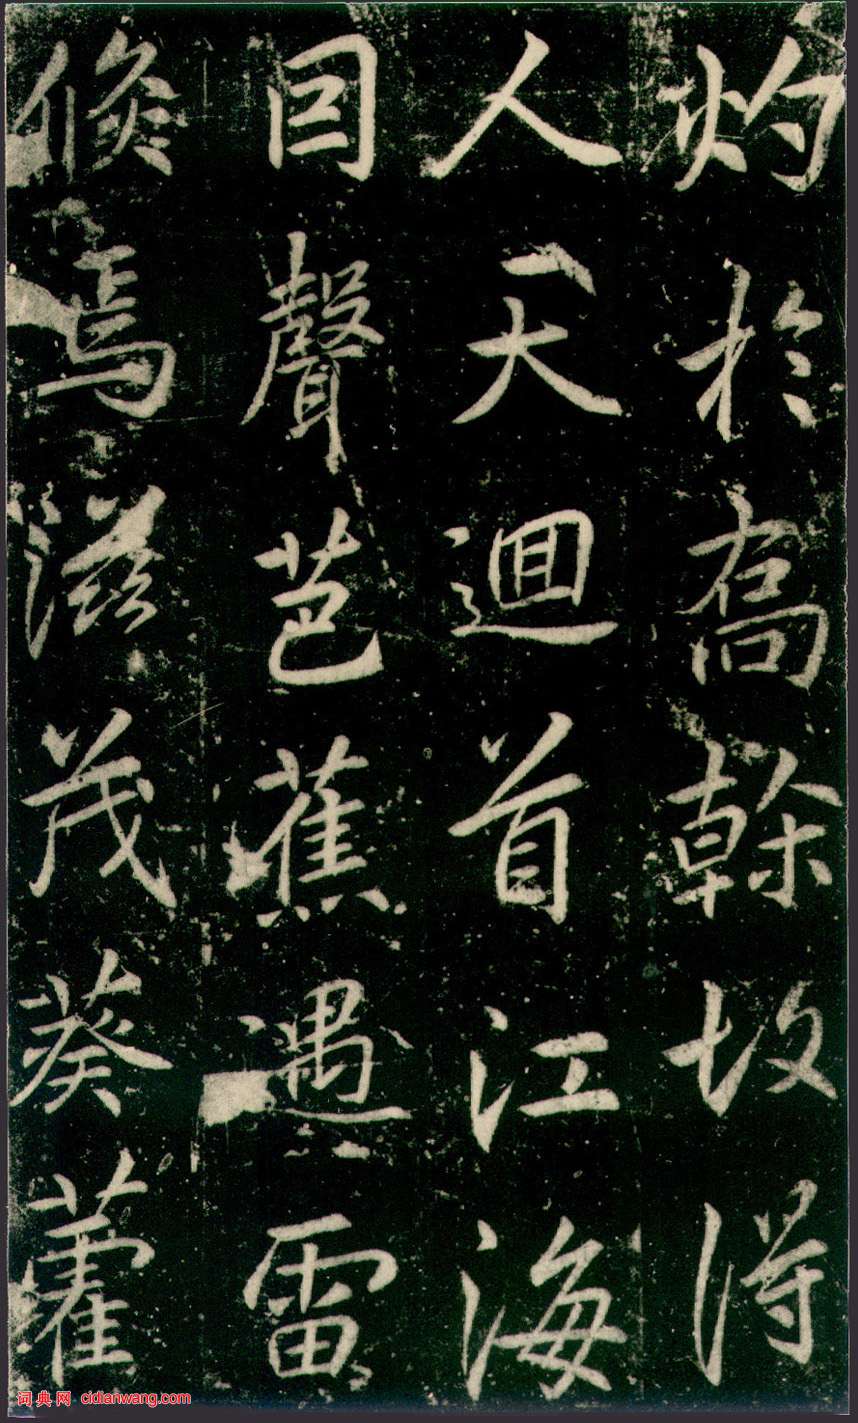 灼於喬幹故得
人天迴首江海
因聲芭蕉遇雷
倏焉滋茂葵藿
词典网 cidianwang.com